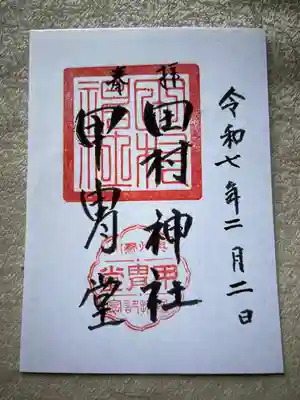 令和七年二月二日
奉拝
田村神社
甲冑堂